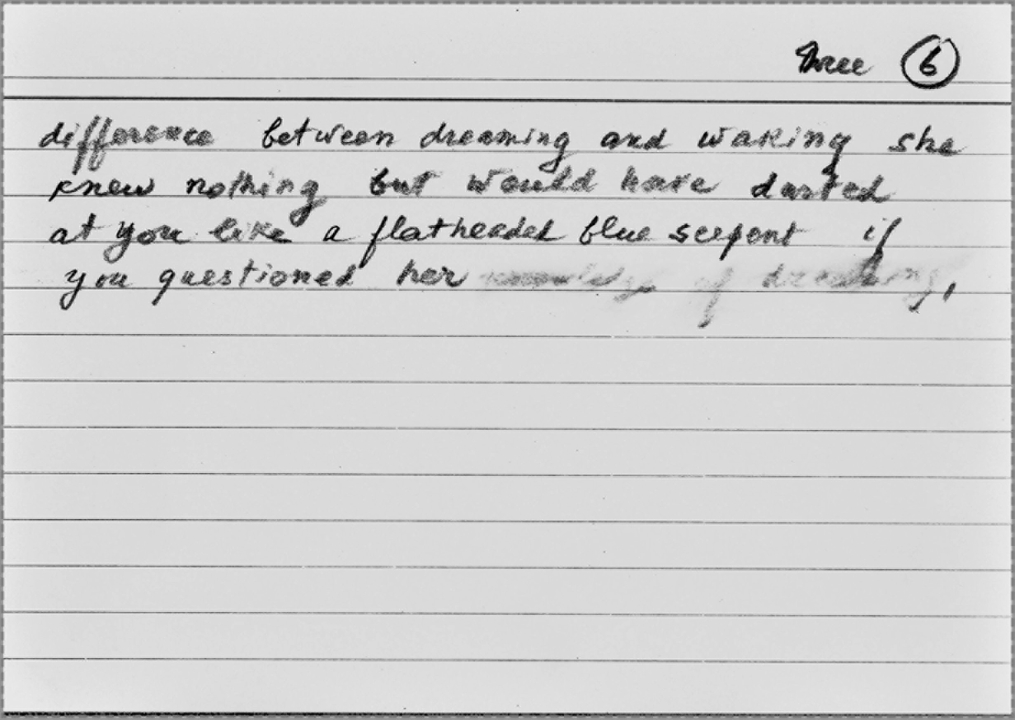 Three 6
difference between dreaming and waking she
knew nothing but would have darted
at you like a flatheaded blue serpent if
you questioned her of